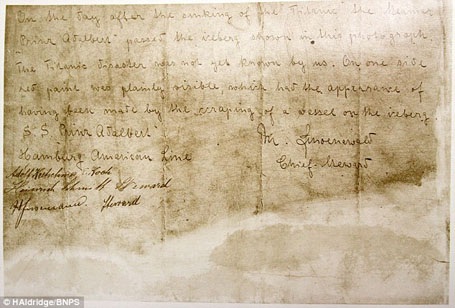 On the day after the sinking of the "Titanic" the steamer
"Prinz Adalbert" passed the iceberg shown in this photograph.
The Titanic disaster was not yet known by us. On one side
red paint was plainly visible, which had the appearance of
having been made by the scraping of a vessel on the iceberg
S.S. "Prinz Adalbert" M.
Hamburg American Line
Chief Steward
Steward
Steward
© HAldridge/BNPS